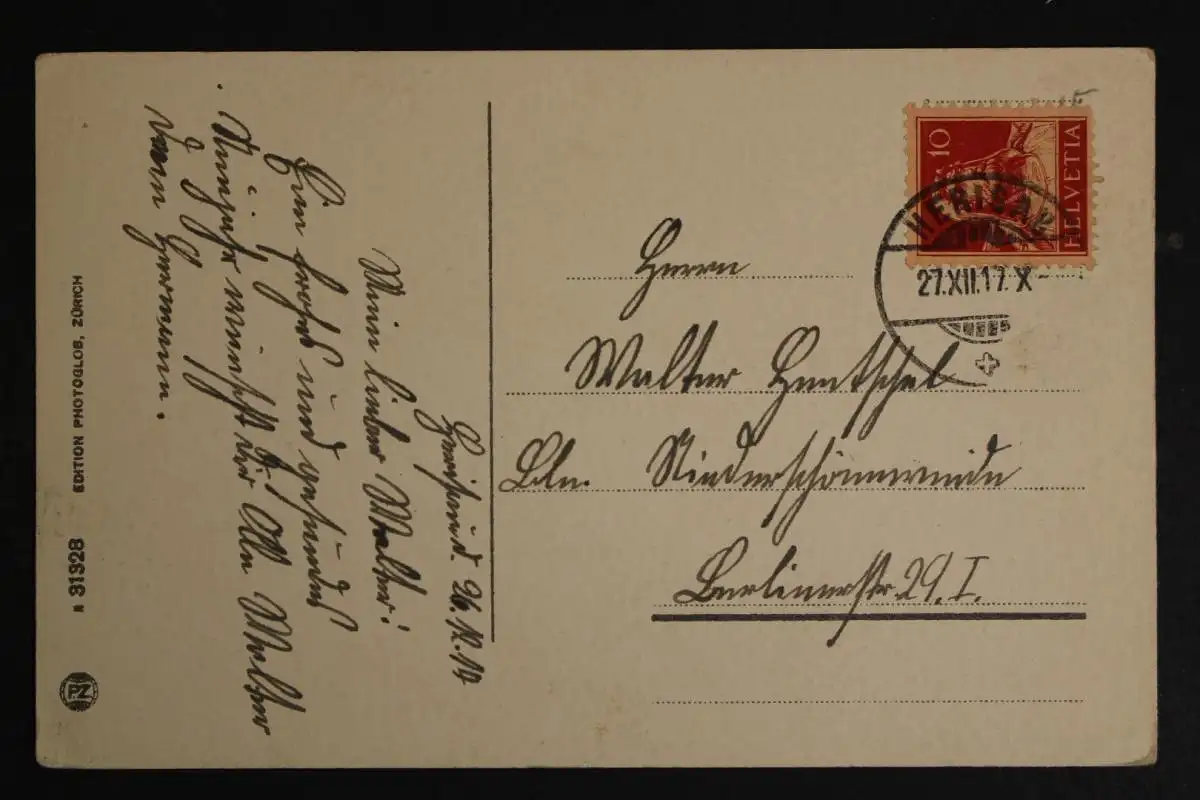 Herisau d. 26.12.17
Mein lieber Walter!
Ein frohes und gesundes
Neujahr wünscht dir Olln Walter
Hermann.
EDITION PHOTOGLOB, ZÜRICH
N 31328
PZ
10
HELVETIA
HERISAU
27.XII.17.X-
15
Herrn
Walter Hentschel
Bln. Niederschöneweide
Berlinerstr. 29. I.